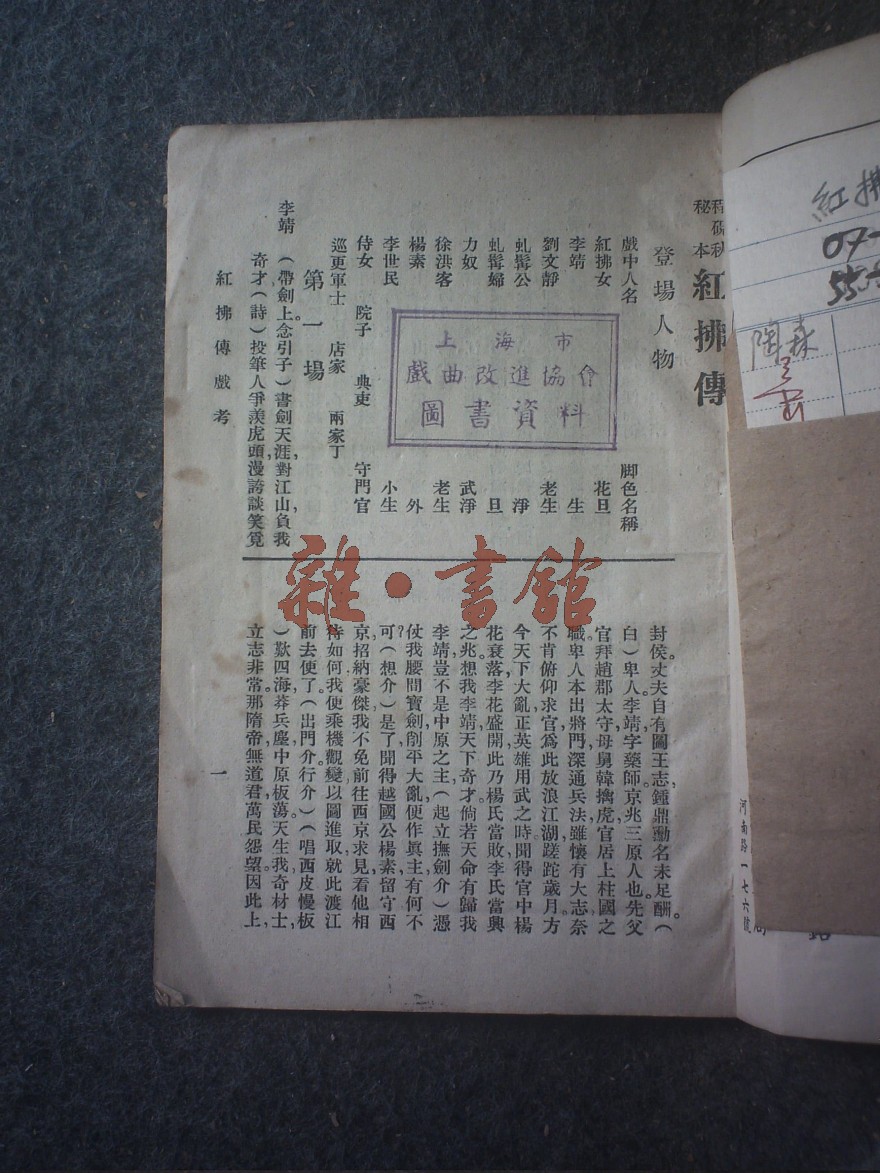 程硯秋
秘本
紅拂傳
登場人物
戲中人名 脚色名稱
紅拂女 花旦
李靖 生
劉文靜 老生
虬髯公 淨
虬髯婦 旦
力奴 武淨
徐洪客 老生
楊素 外
李世民 小生
侍女 院子 典吏 守門官
巡更軍士 店家 兩家丁
第一場
李靖 (帶劍上念引子)書劍天涯,對江山,負我
奇才(詩)投筆人爭羨虎頭,漫誇談笑覓
紅拂傳戲考
封侯。丈夫自有圖王志,鍾鼎勳名未足酬。(
白)卑人李靖字藥師。京兆三原人也。先父
官拜趙郡太守母舅韓擒虎官居上柱國之
職。卑人本出將門,深通兵法雖懷有大志奈
不肯俯仰求官爲此放浪江湖,蹉跎歲月。方
今天下大亂正英雄用武之時,聞得官中楊
花衰落,李花盛開此乃楊氏當敗李氏當興
之兆。想我李靖天下奇才。倘若天命有歸我
李靖豈不是中原之主(起立撫劍介)憑
仗我腰間寶劍,削平大亂,便作眞主有何不
可?(想介)是了聞得越國公楊素留守西
京,招納豪傑,我不免前往西京求見,看他相
待如何我便乘機觀變以圖進取就此渡江
前去便了。(出門介。行介)(唱西皮慢板
)歎四海,莽兵塵,中原板蕩。天生我,奇材士,
立志非常。那隋帝,無道君,萬民怨望。因此上,
一
上海市
戲曲改進協會
圖書資料
雜·書館
紅拂
07-
陶森
河南路一七六號